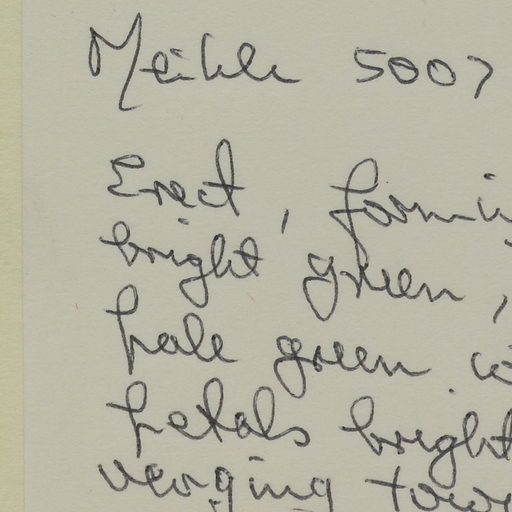 Meikle 5007
Erect, formi
bright green,
pale green wi
petals bright
verging towa